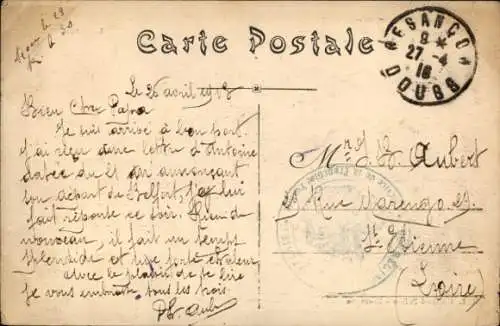 Carte Postale
BESANÇON
27-4
18
DOUBS
Le 26 avril 1918
Bien Cher Papa
Je suis arrivé à bon port.
J'ai reçu une lettre d'Antoine
datée du 21 an annonçant
son départ de Belfort, je lui
fait réponse ce soir. Rien de
nouveau, il fait un temps
splendide et une forte chaleur.
avec le plaisir de te lire
je vous embrasse tous les trois.
Mr J. B. Aubert
Rue Marengo
St Etienne
(Loire)